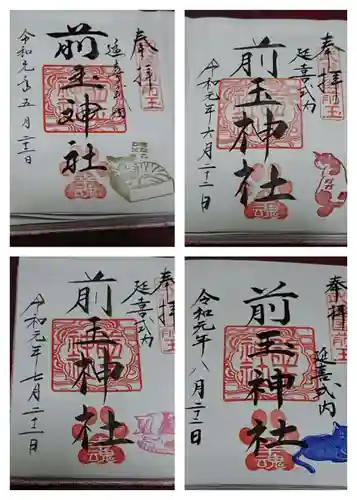 奉拝
延喜式内
前玉神社
令和元年五月二十二日
奉拝
延喜式内
前玉神社
令和元年六月二十二日
奉拝
延喜式内
前玉神社
令和元年七月二十二日
奉拝
延喜式内
前玉神社
令和元年八月二十二日